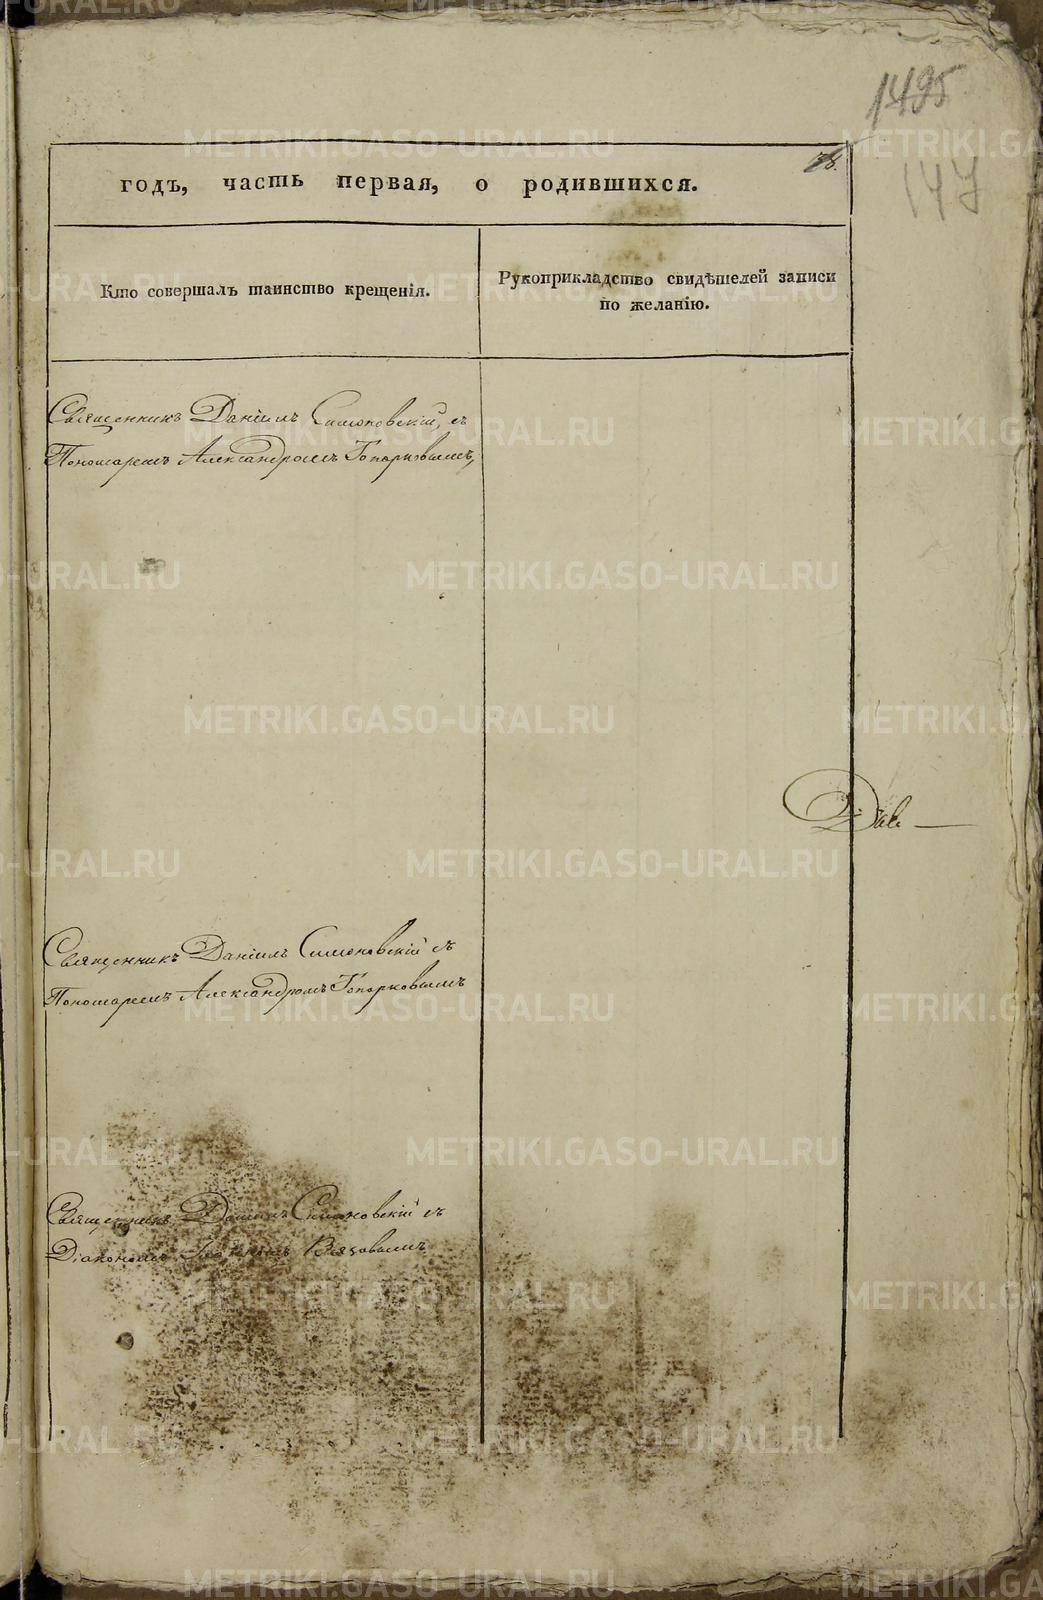 1495
147
78.
годъ, часть первая, о родившихся.
Кто совершалъ таинство крещенія.
Рукоприкладство свидѣтелей записи
по желанію.
Священникъ Даніилъ Симоновскій, съ
Пономаремъ Александромъ Топорковымъ,
Діак
Священникъ Даніилъ Симоновскій съ
Пономаремъ Александромъ Топорковымъ
Священникъ Даніилъ Симоновскій съ
Діакономъ Вяховымъ
METRIKI.GASO-URAL.RU